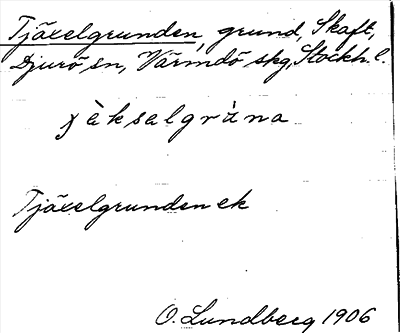 Tjäxelgrunden, grund, Skaft,
Djurö sn, Värmdö skg, Stockh. l.
Tjäxelgrunden ek
O. Lundberg 1906